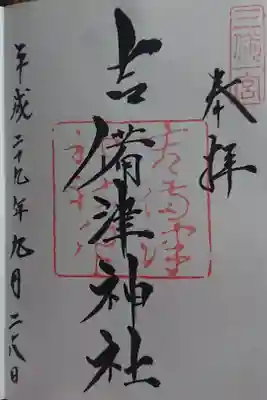 三備一宮
奉拝
吉備津神社
平成二十九年九月二十八日